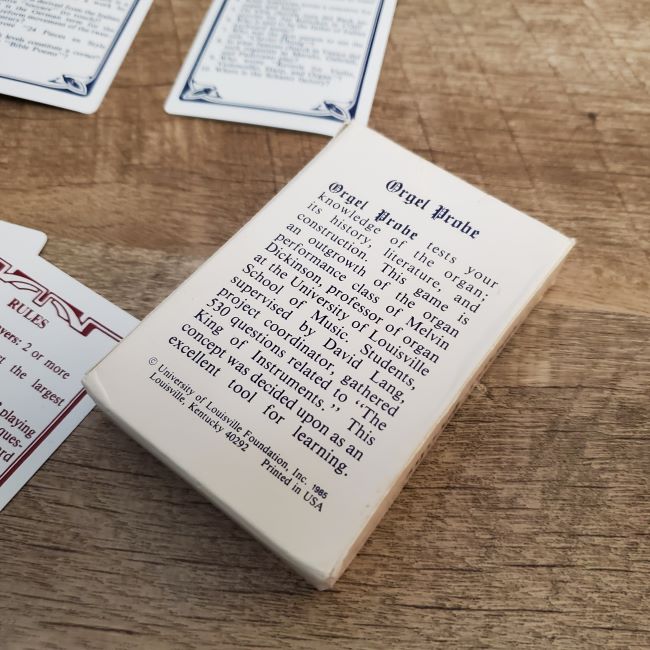 "24 Pieces en Style
levels constitute a
"Bible Poems"?
Orgel Probe
Orgel Probe tests your
knowledge of the organ;
its history, literature, and
construction. This game is
an outgrowth of the organ
performance class of Melvin
Dickinson, professor of organ
at the University of Louisville
School of Music. Students,
supervised by David Lang,
project coordinator, gathered
530 questions related to "The
King of Instruments." This
concept was decided upon as an
excellent tool for learning.
© University of Louisville Foundation, Inc. 1985
Louisville, Kentucky 40292
Printed in USA
RULES
yers: 2 or more
st the largest
playing
ques-
rd